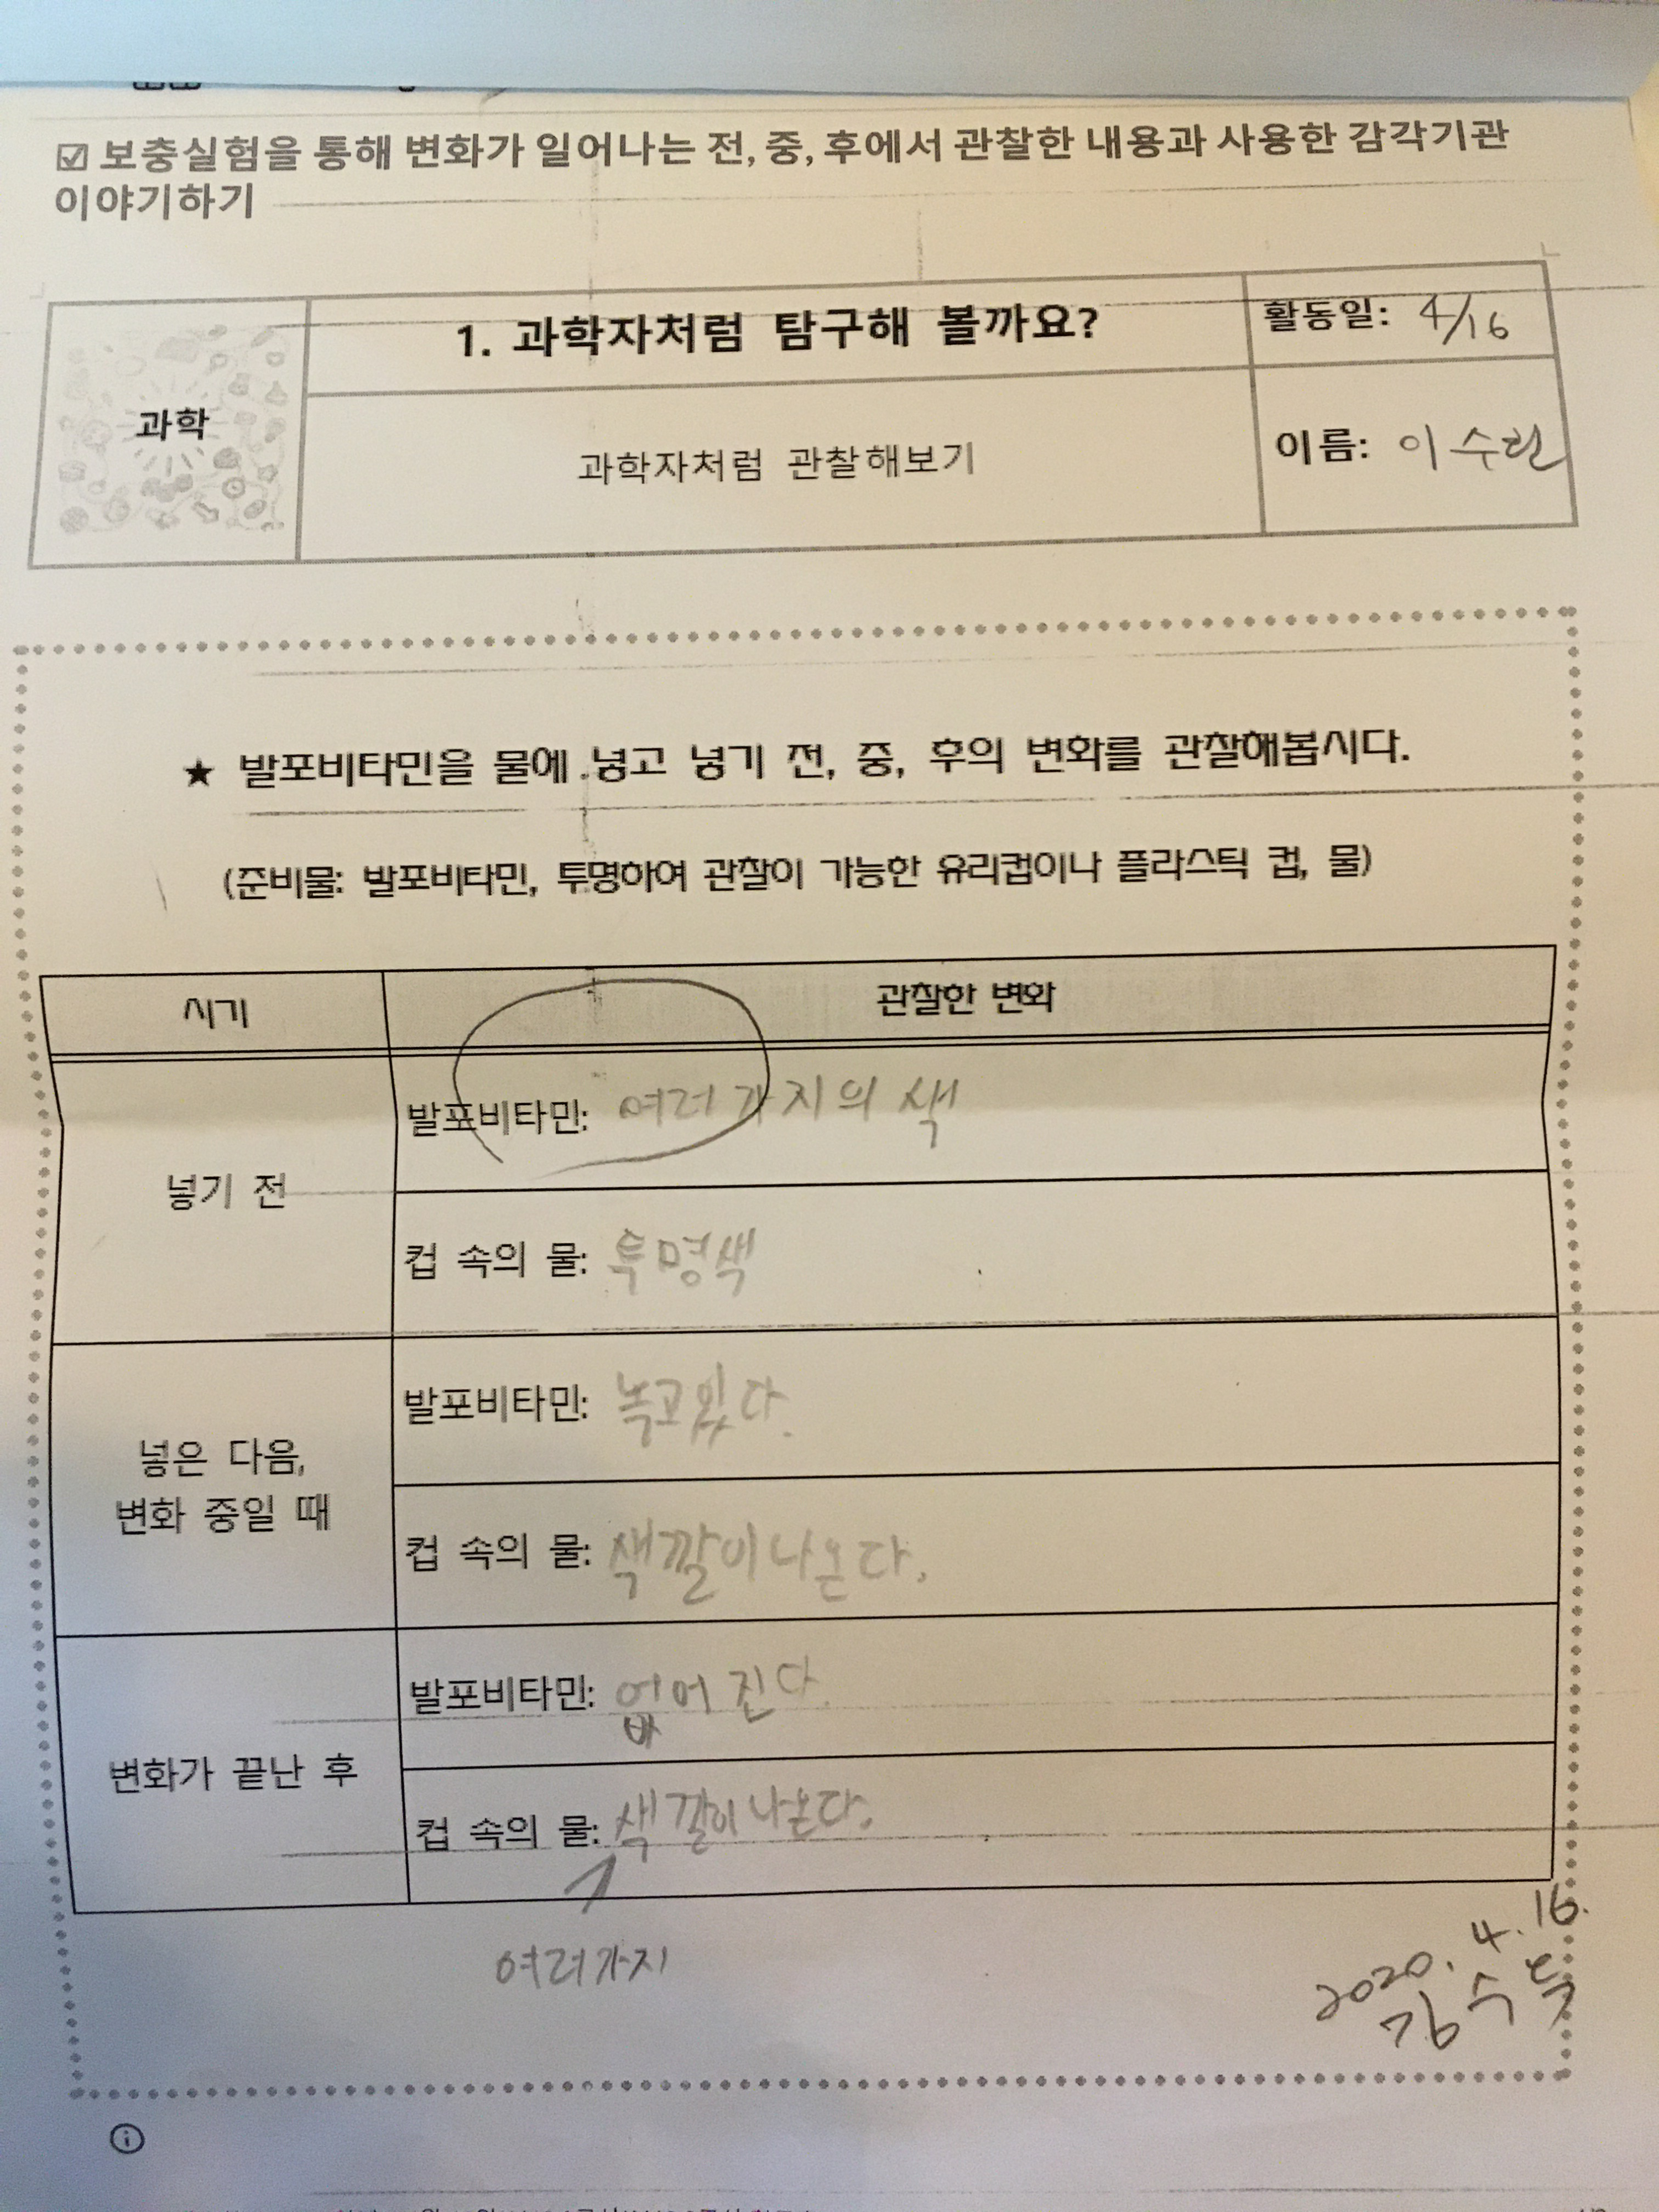 ☑ 보충실험을 통해 변화가 일어나는 전, 중, 후에서 관찰한 내용과 사용한 감각기관
이야기하기
과학
1. 과학자처럼 탐구해 볼까요?
활동일: 4/16
과학자처럼 관찰해보기
이름: 이수란
★ 발포비타민을 물에 넣고 넣기 전, 중, 후의 변화를 관찰해봅시다.
(준비물: 발포비타민, 투명하여 관찰이 가능한 유리컵이나 플라스틱 컵, 물)
시기
관찰한 변화
넣기 전
발포비타민: 여러 가지의 색
컵 속의 물: 투명색
넣은 다음,
변화 중일 때
발포비타민: 녹고있다.
컵 속의 물: 색깔이 나온다.
변화가 끝난 후
발포비타민: 없어 진다.
컵 속의 물: 색깔이 나온다.
여러가지
2020. 4. 16.
김수